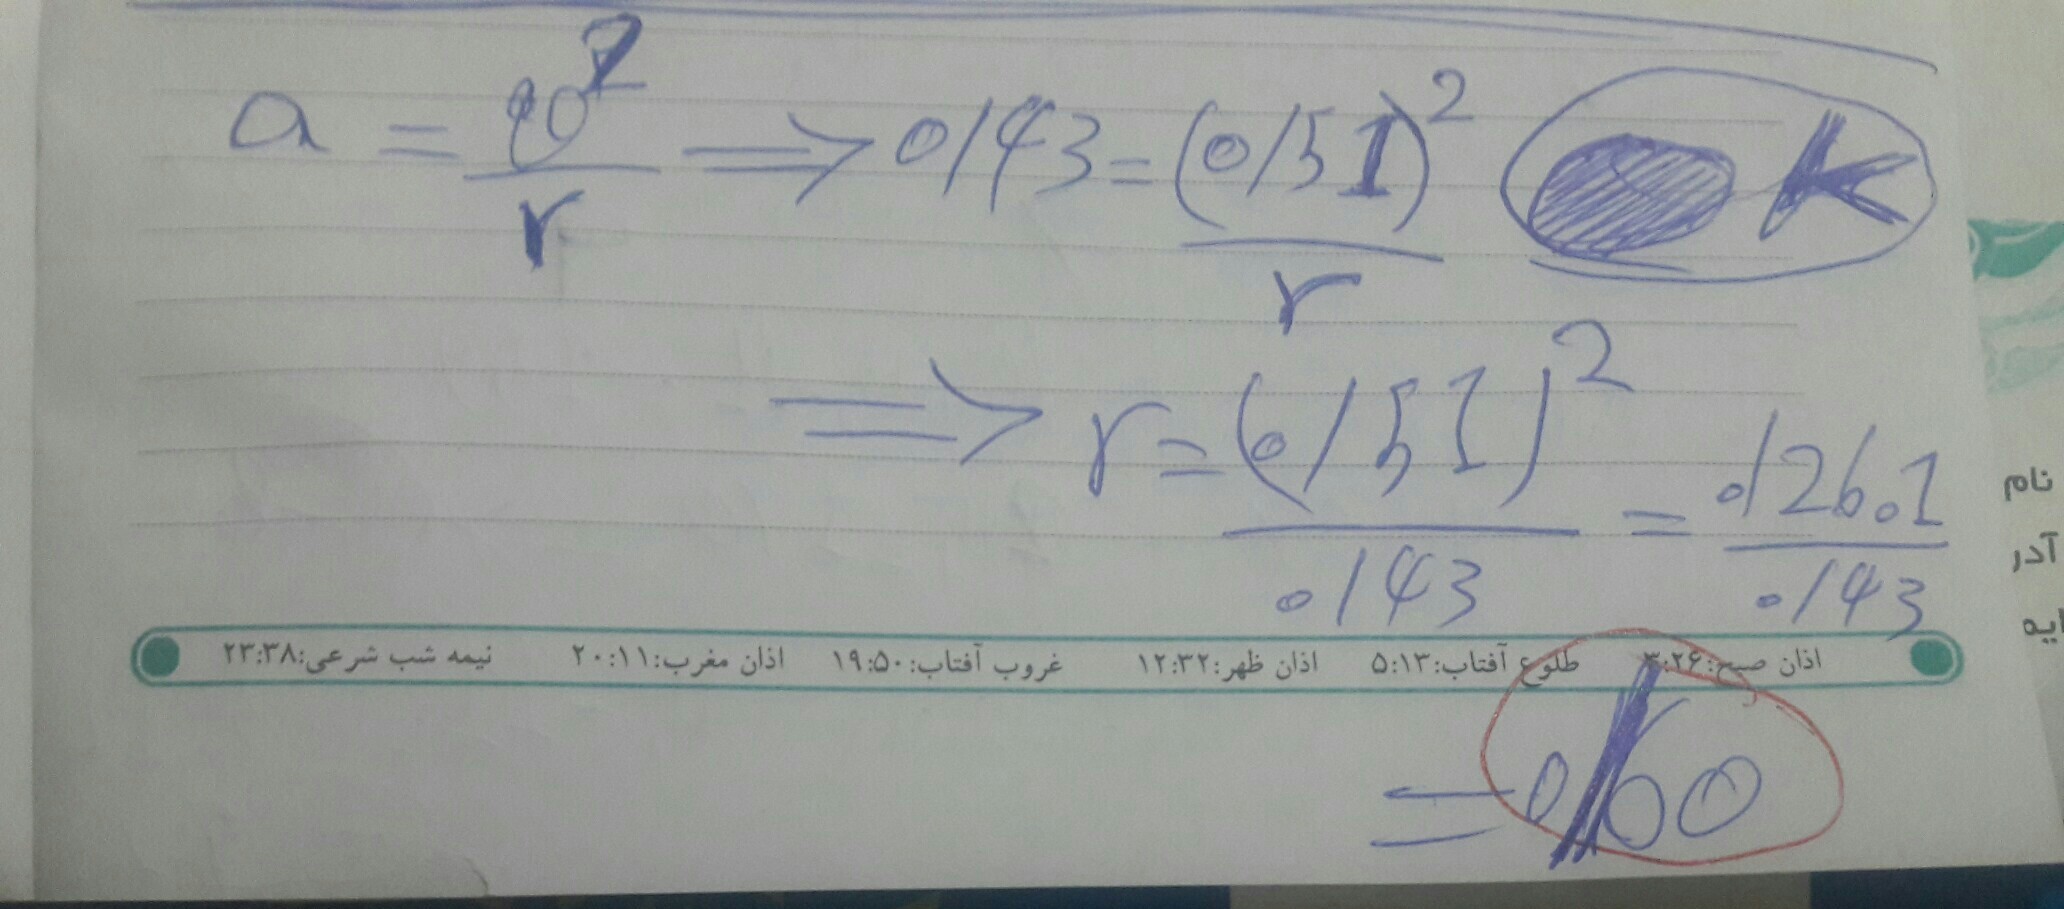 a = v²/r ⇒ 0/43 = (0/51)²/r K
⇒ r = (0/51)²/0/43 = 0/2601/0/43
نام
آدر
ایه
اذان صبح:۳:۲۶ طلوع آفتاب:۵:۱۳ اذان ظهر:۱۲:۳۲ غروب آفتاب:۱۹:۵۰ اذان مغرب:۲۰:۱۱ نیمه شب شرعی:۲۳:۳۸
= 0/60